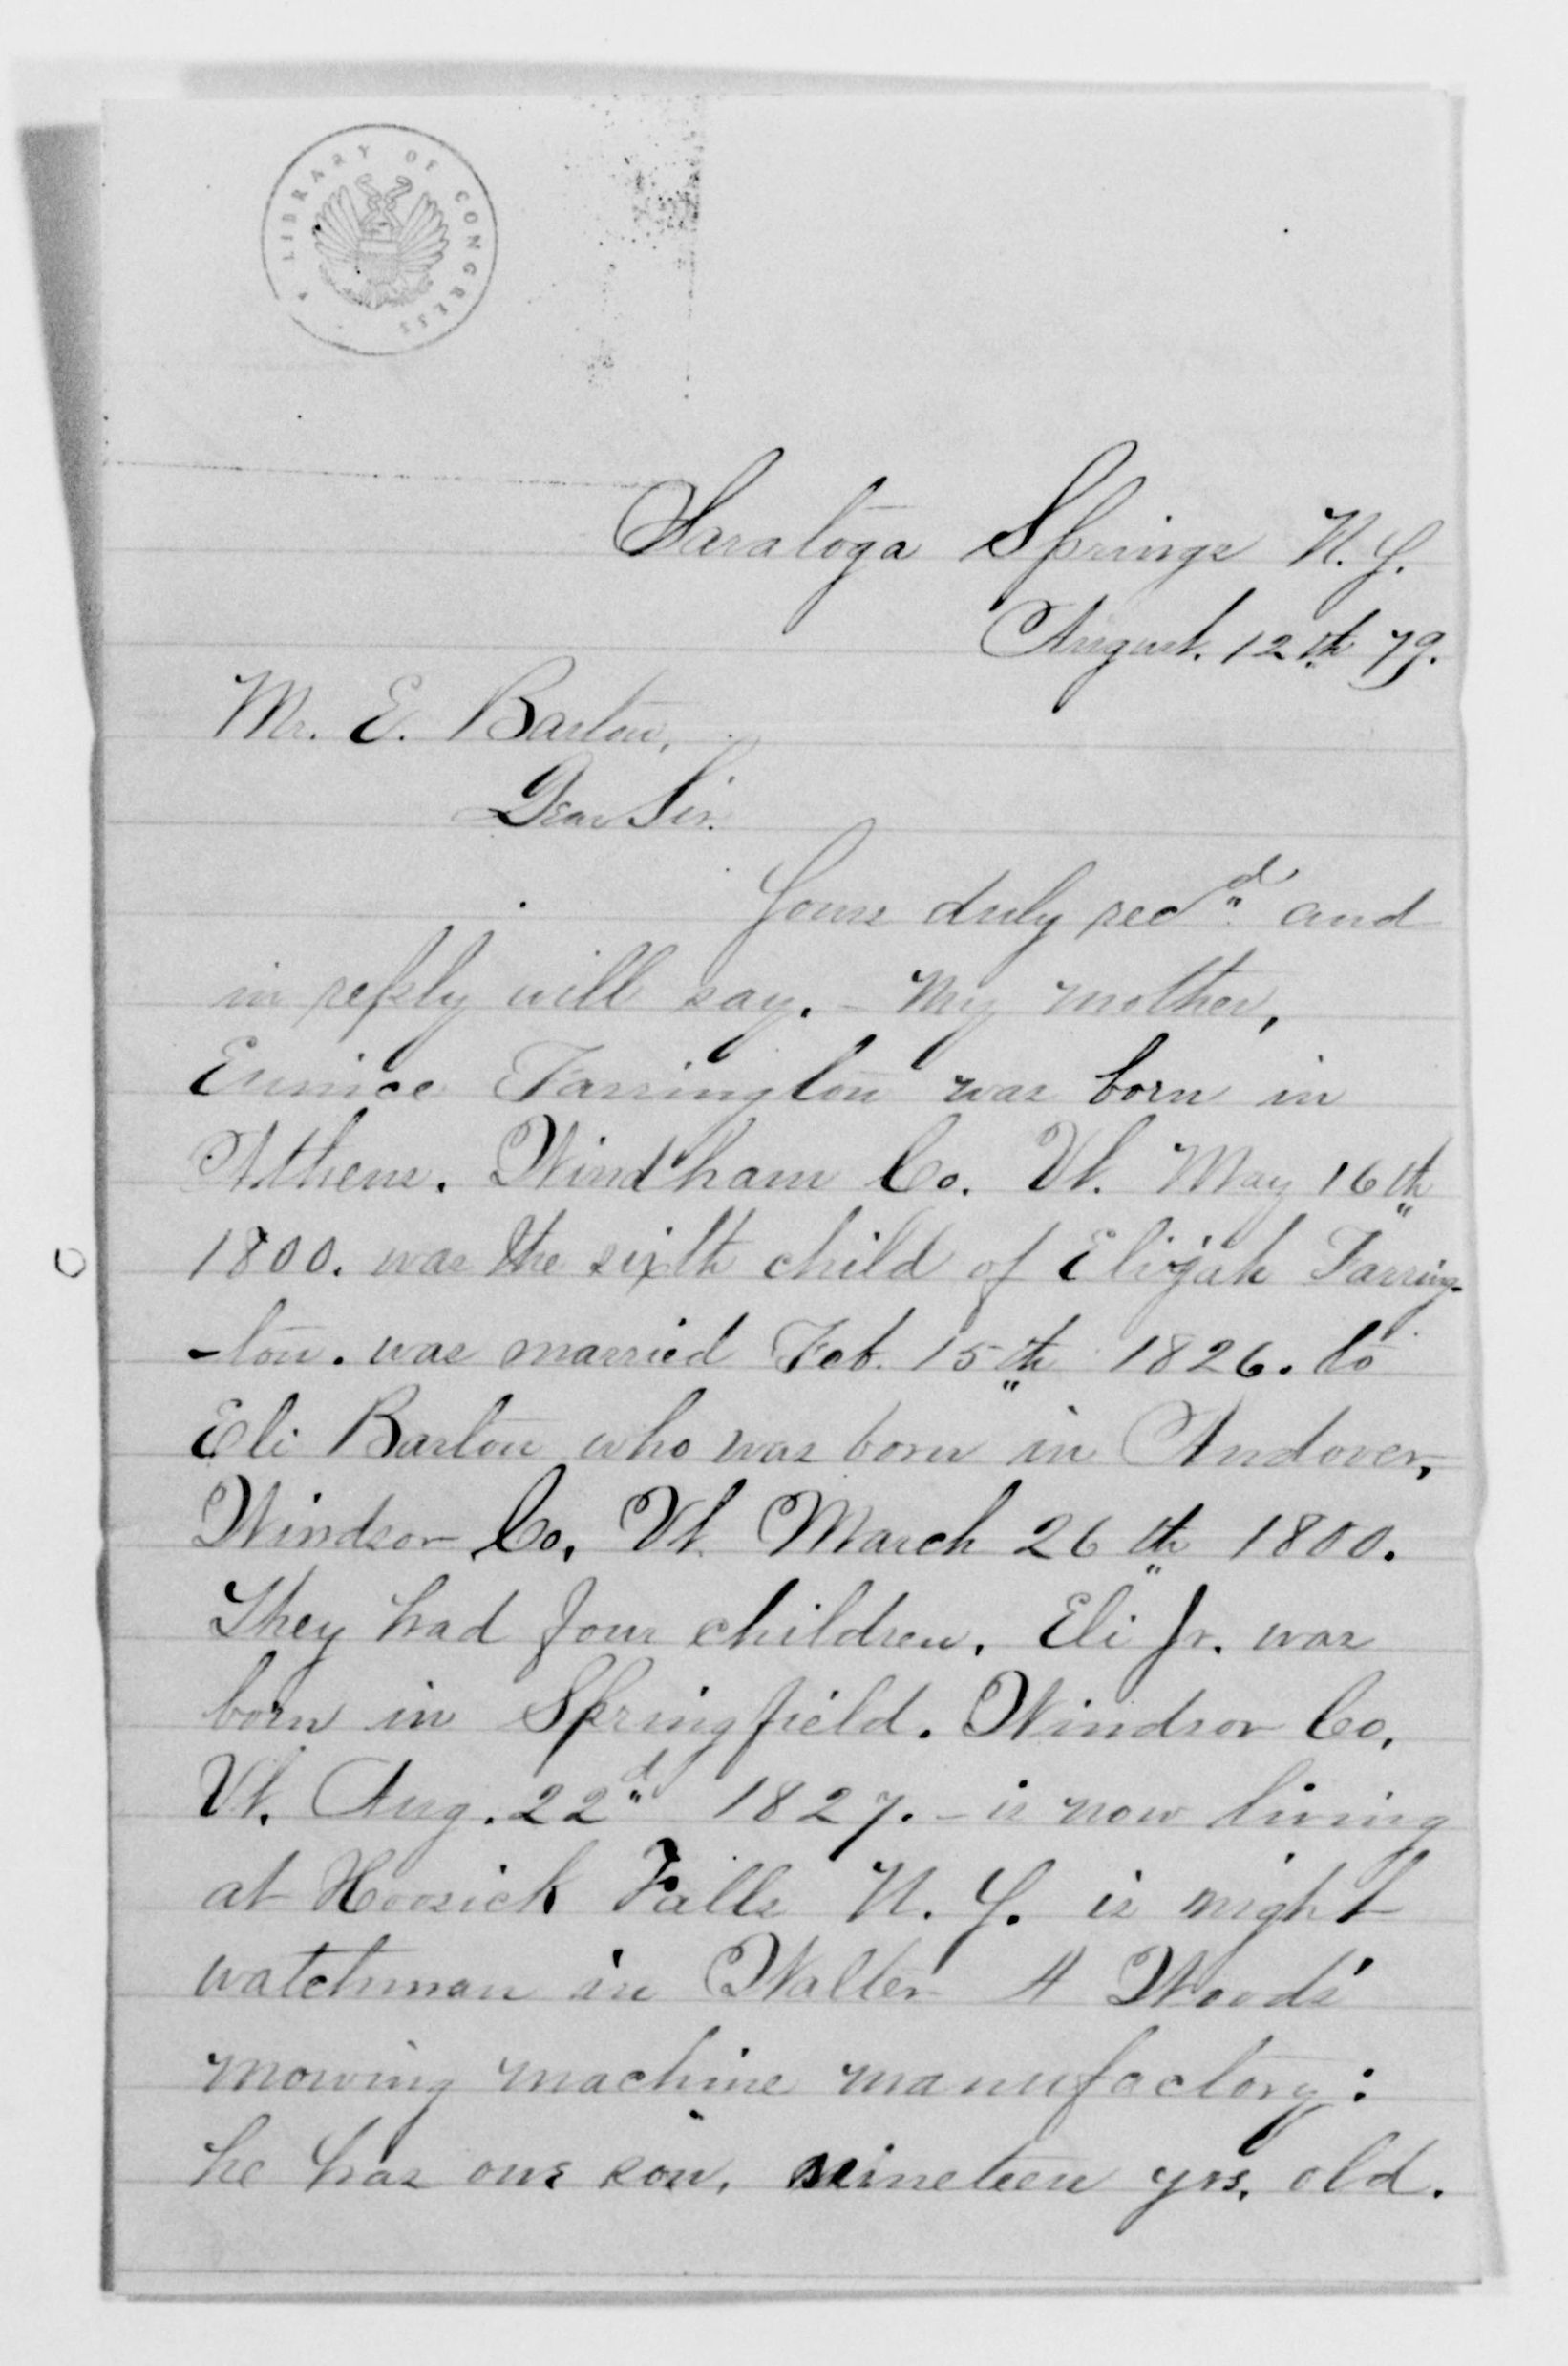 LIBRARY OF CONGRESS
Saratoga Springs N. Y.
August. 12th 79.
Mr. E. Barton,
Dear Sir.
Yours duly recd and
in reply will say. - My mother,
Eunice Farrington was born in
Athens. Windham Co. Vt. May 16th
1800. was the sixth child of Elijah Farring-
-ton. was married Feb. 15th 1826. to
Eli Barton who was born in Andover,
Windsor Co, Vt. March 26th 1800.
They had four children. Eli Jr. was
born in Springfield. Windsor Co,
Vt. Aug. 22d 1827. - is now living
at Hoosick Falls N. Y. is night
watchman in Walter A Woods'
mowing machine manufactory:
he has one son, nineteen yrs, old.